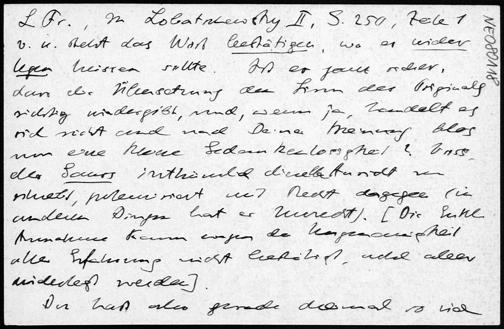 L. Fr., in Lobatschewsky II, S. 250, Zeile 1
v. u. steht das Wort bestätigen, wo es wider
legen heissen sollte. Ist es ganz sicher,
dass die Übersetzung den Sinn des Originals
richtig wiedergibt, und, wenn ja, handelt es
sich nicht auch nach Deiner Meinung blos
um eine kleine Gedankenlosigkeit?
der Gauss
schreibt, polemisiert mit Recht dagegen (in
anderen Dingen hat er Unrecht). [Die Eukl.
Annahme kann wegen der Ungenauigkeit
aller Erfahrung nicht bestätigt, wohl aber
widerlegt werden].
Du hast aber gerade diesmal so viel
NEO80A18